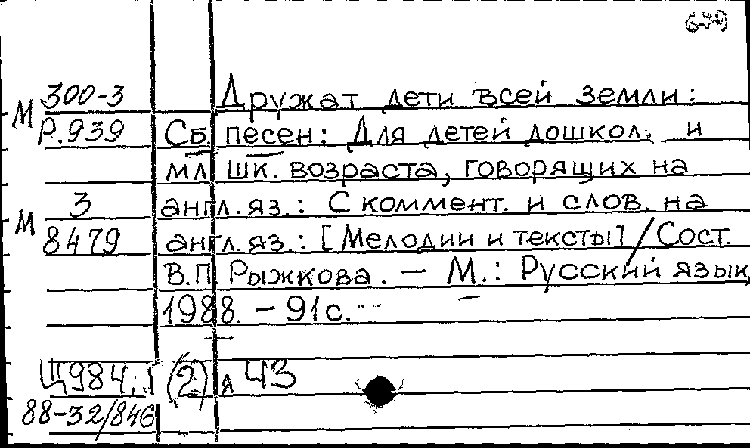 300-3 Дружат дети всей земли:
М Р.939 Сб. песен: Для детей дошкол. и
мл. шк. возраста, говорящих на
3 англ. яз.: С коммент. и слов. на
М 8479 англ. яз.: [Мелодии и тексты] / Сост.
В.П. Рыжкова. — М.: Русский язык,
1988. — 91с. --
Щ984.1 (2) я 43
88-32/846